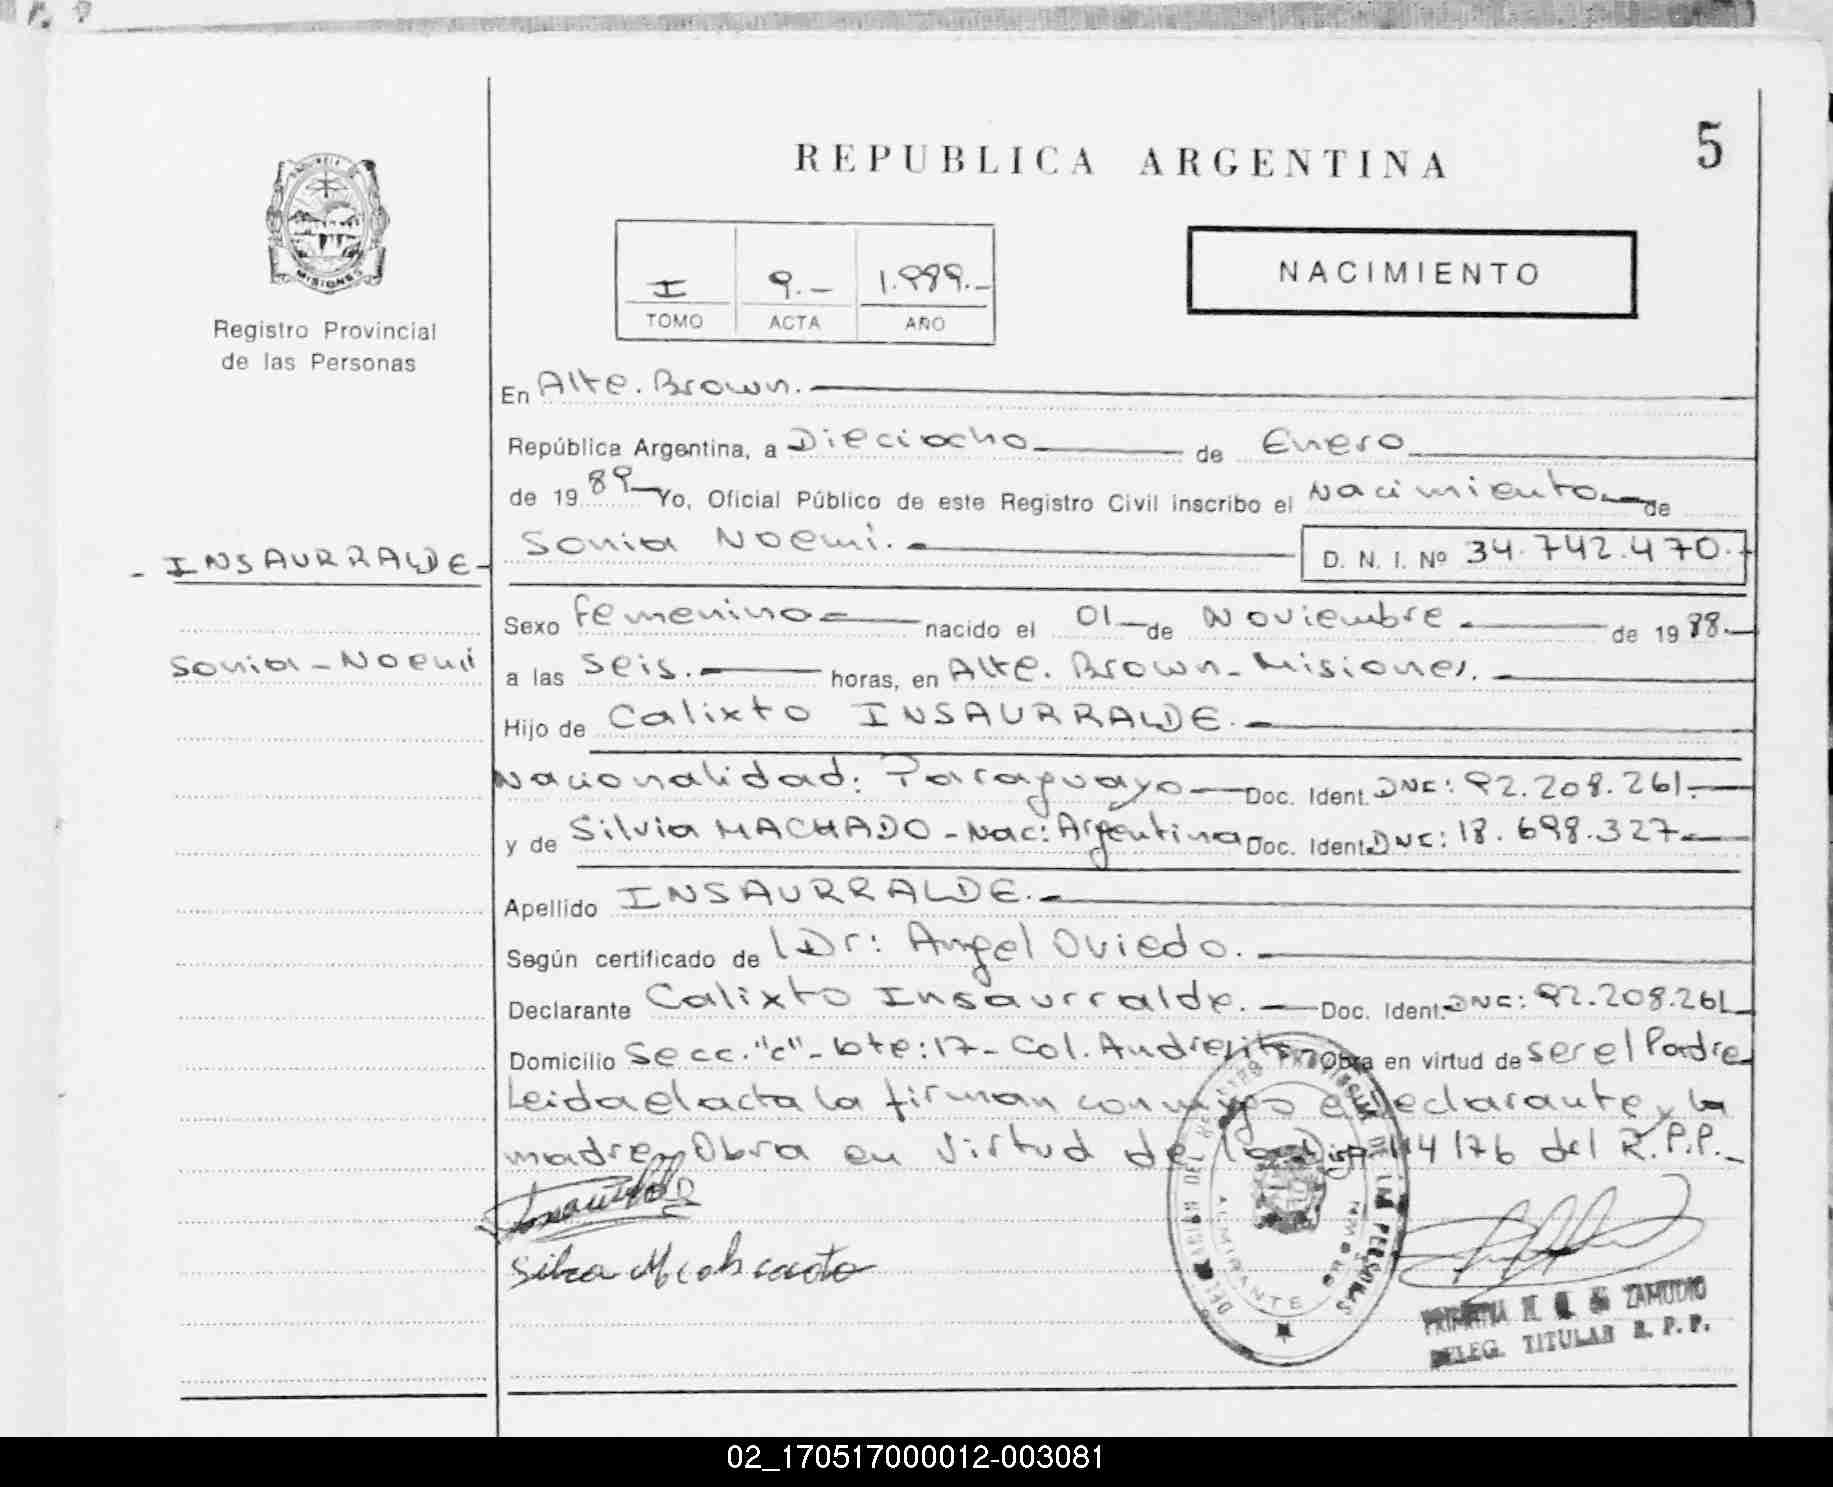 5
REPUBLICA ARGENTINA
MISIONES
Registro Provincial
de las Personas
I 9.- 1.989.-
TOMO ACTA AÑO
NACIMIENTO
En Alte. Brown.
República Argentina, a Dieciocho de Enero
de 1989 Yo, Oficial Público de este Registro Civil inscribo el Nacimiento de
- INSAURRALDE -
Sonia Noemi. D. N. I. Nº 34.742.470.-
Sonia - Noemí
Sexo femenino nacido el 01 de Noviembre de 1988.-
a las seis. horas, en Alte. Brown - Misiones.
Hijo de Calixto INSAURRALDE.
Nacionalidad: Paraguayo Doc. Ident. DNI: 92.208.261.
y de Silvia MACHADO - Nac: Argentina Doc. Ident. DNI: 18.698.327
Apellido INSAURRALDE.
Según certificado de Dr: Angel Oviedo.
Declarante Calixto Insaurralde. Doc. Ident. DNI: 92.208.261
Domicilio Secc. "c" - lote: 17 - Col. Andresito Obra en virtud de ser el Padre
Leida el acta la firman conmigo el declarante y la
madre. Obra en Virtud de la Disp. 114/76 del R.P.P.-
ALMIRANTE BROWN
ZAMUDIO
DELEG. TITULAR R. P. P.
02_170517000012-003081